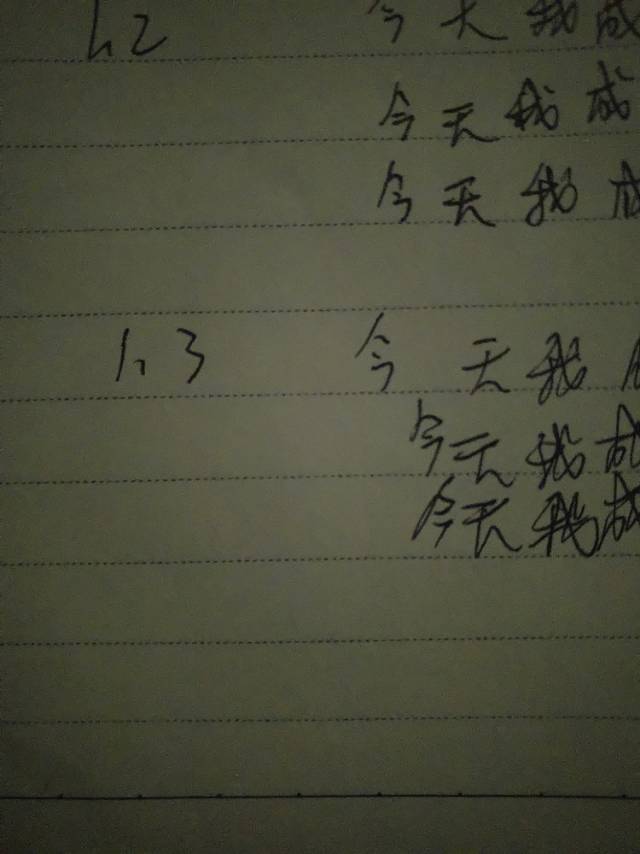 1.2 今天我成
今天我成
今天我成
1.3 今天我
今天我成
今天我成